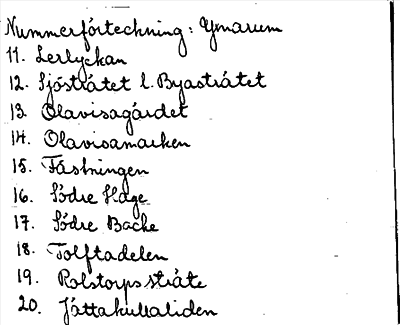 Nummerförteckning: Ymarum
11. Lerlyckan
12. Sjöstråtet l. Byastråtet
13 Olavisagärdet
14. Olavisamarken
15. Fästningen
16. Södre Hage
17. Södre Backe
18. Tolftadelen
19. Rolstorpsstråte
20. Jättakullaliden